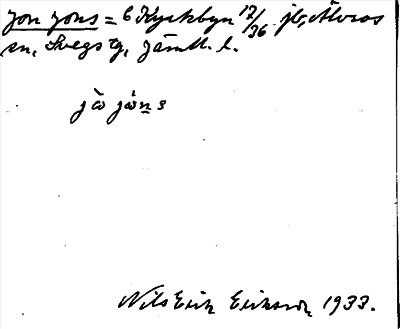 Jon Jons = 6 Kyrkbyn 17/36 jb, Älvros
sn, Svegs tg, Jämtl. l.
jò̄ jò̄n s
Nils Erik Eriksson 1933.